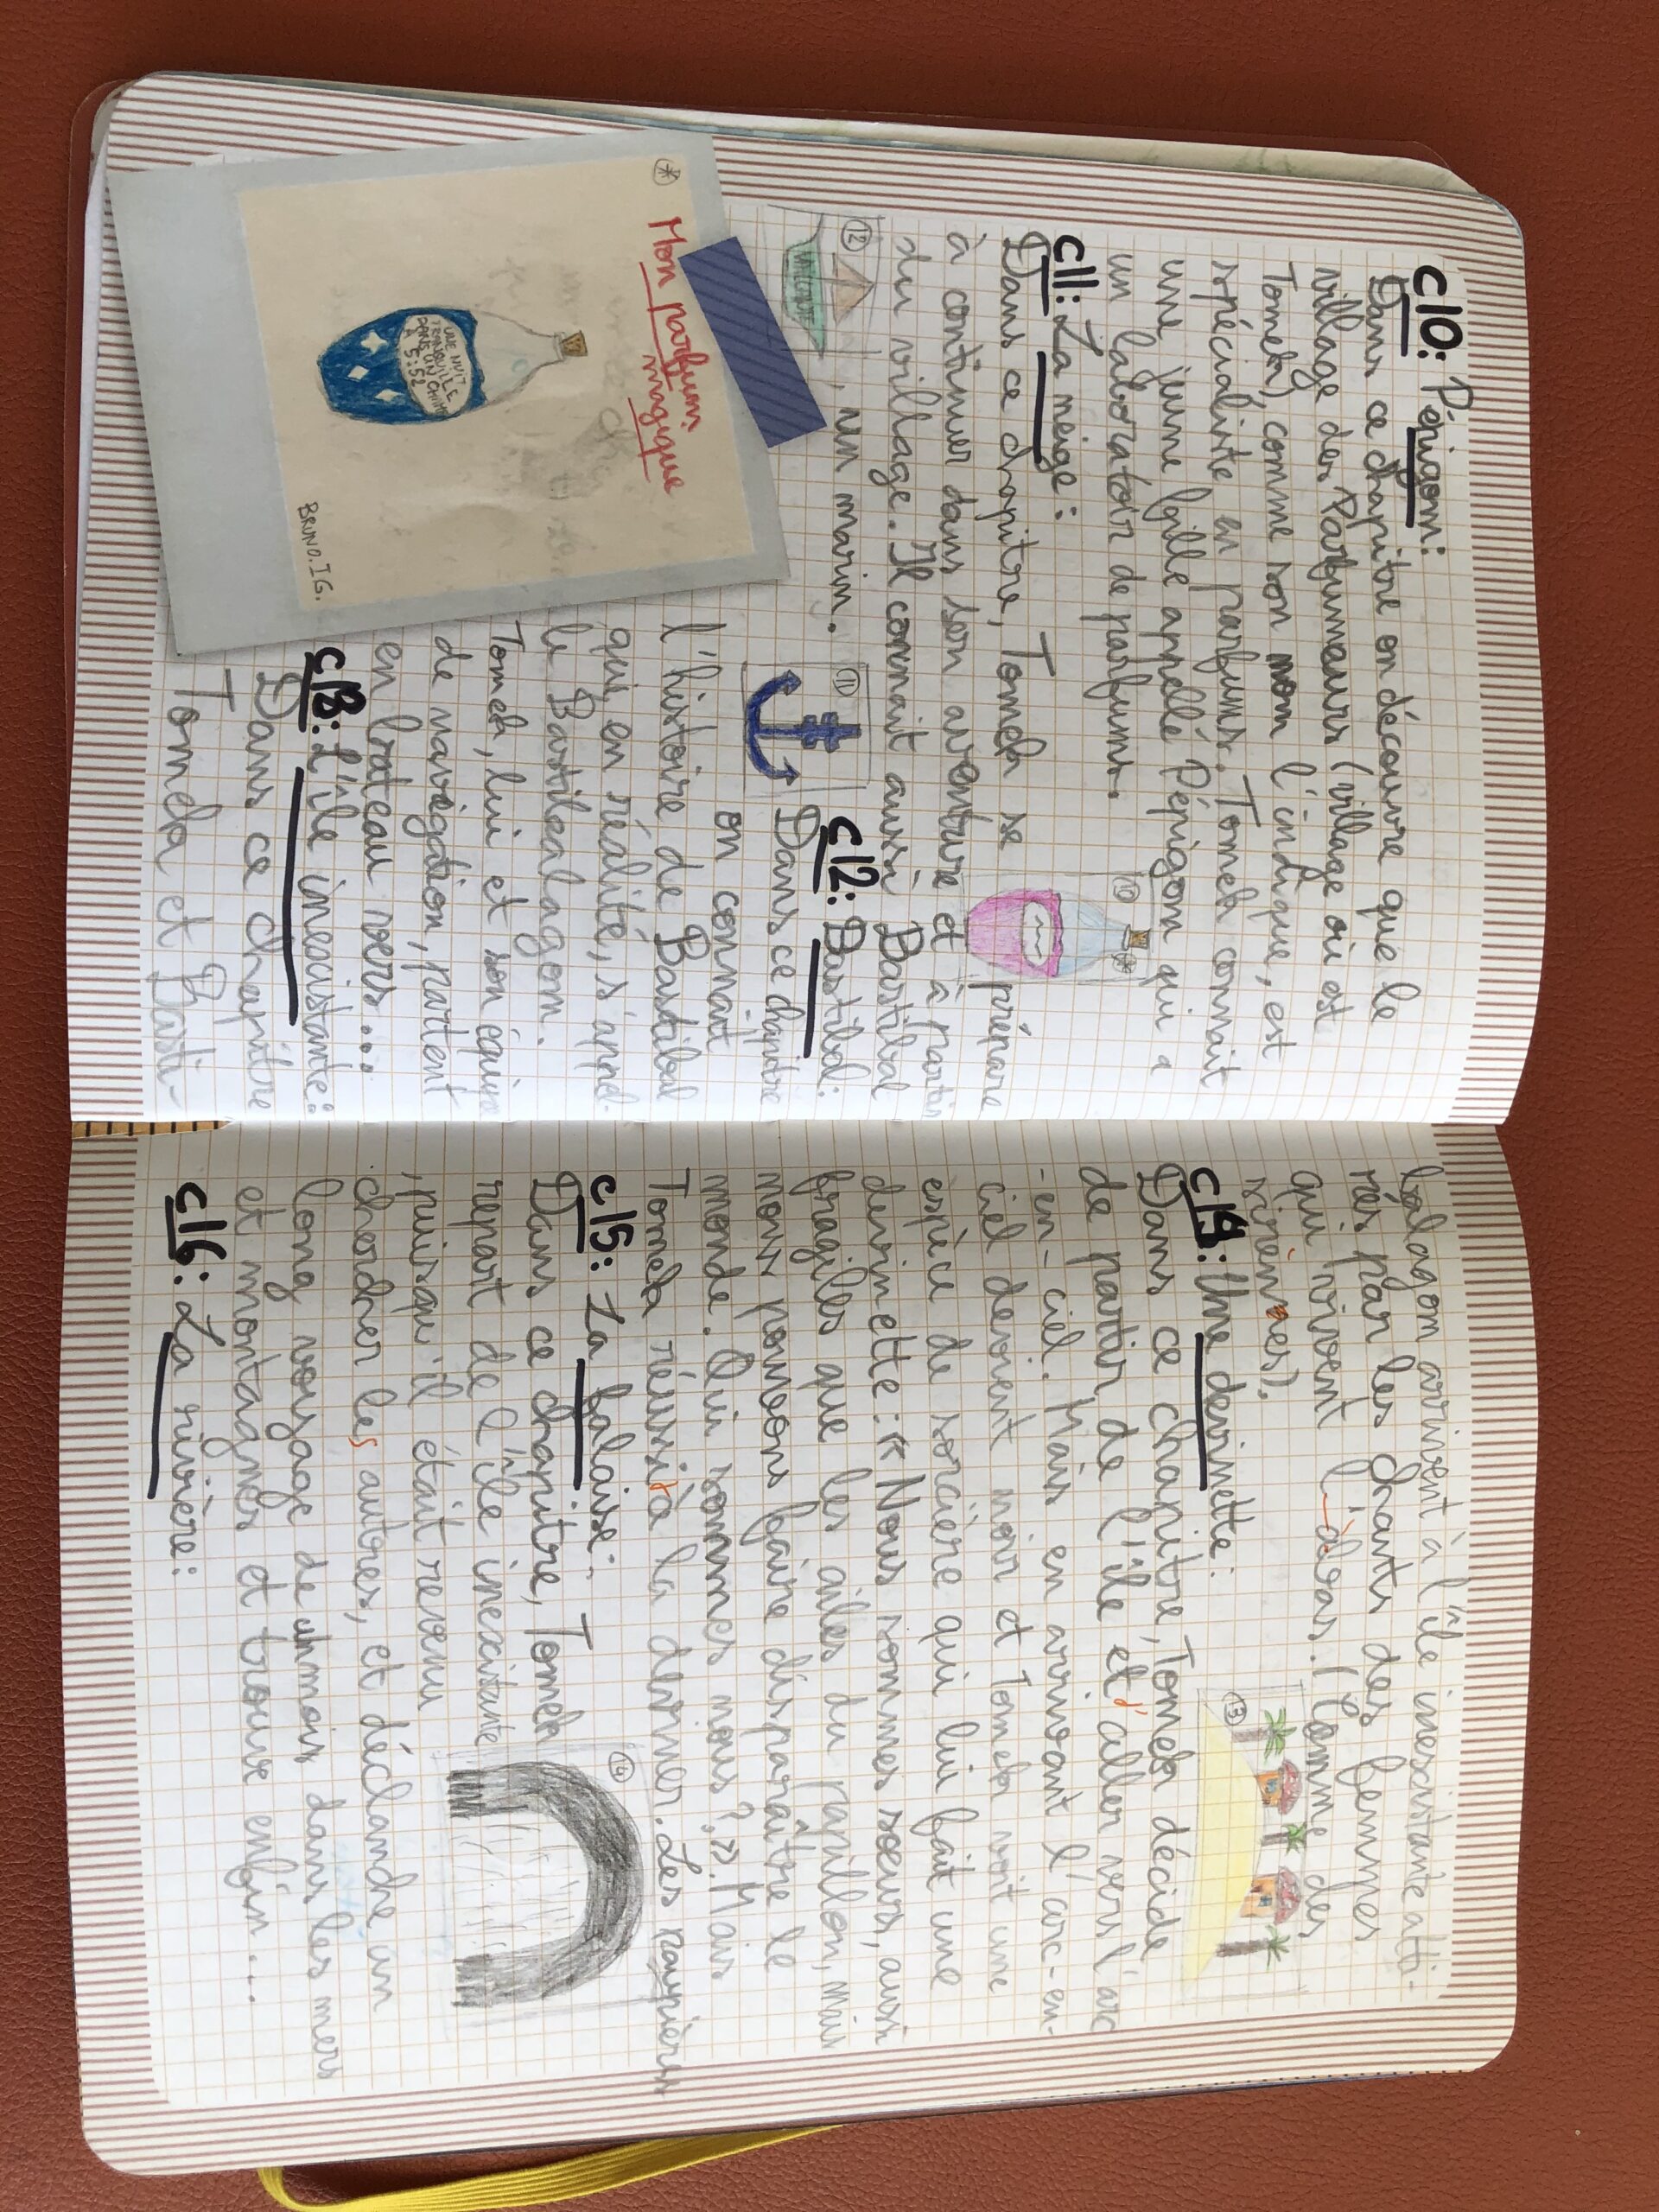 C10: Pépigom:
Dans ce chapitre on découvre que le
village des Parfumeurs (village où est
Tomek), comme son nom l'indique, est
spécialiste en parfums. Tomek connait
une jeune fille appellé Pépigom qui a
un laboratoir de parfums.
10
C11: La neige:
Dans ce chapitre, Tomek se prépare
à continuer dans son aventure et à partir
du village. Il connait aussi Bastibal
12
, un marin.
11
C12: Bastibal:
Dans ce chapitre
on connait
l'histoire de Bastibal
qui, en réalité, s'appel-
le Bastibalagom.
Tomek, lui et son équipe
de navégation, partent
en bateau vers...
C13: L'île inexistante:
Dans ce chapitre
Tomek et Basti-
Mon parfum
magique
UNE NUIT
TRANQUILLE
DANS UN CHAMP
À 5:52
BRUNO.IG.
balagom arrivent à l'île inexistante atti-
rés par les chants des femmes
qui vivent là-bas. (Comme des
sirènes).
13
C14: Une devinette:
Dans ce chapitre, Tomek décide
de partir de l'île et d'aller vers l'arc
-en-ciel. Mais en arrivant l'arc-en-
ciel devient noir et Tomek voit une
espèce de sorcière qui lui fait une
devinette: « Nous sommes sœurs, aussi
fragiles que les ailes du papillon, mais
nous pouvons faire disparaître le
monde. Qui sommes nous? ». Mais
Tomek réussi à la deviner. Les paupières
14
C15: La falaise:
Dans ce chapitre, Tomek
repart de l'île inexistante
, puisqu'il était revenu
chercher les autres, et déclanche un
long voyage de un mois dans les mers
et montagnes et trouve enfin...
C16: La rivière: